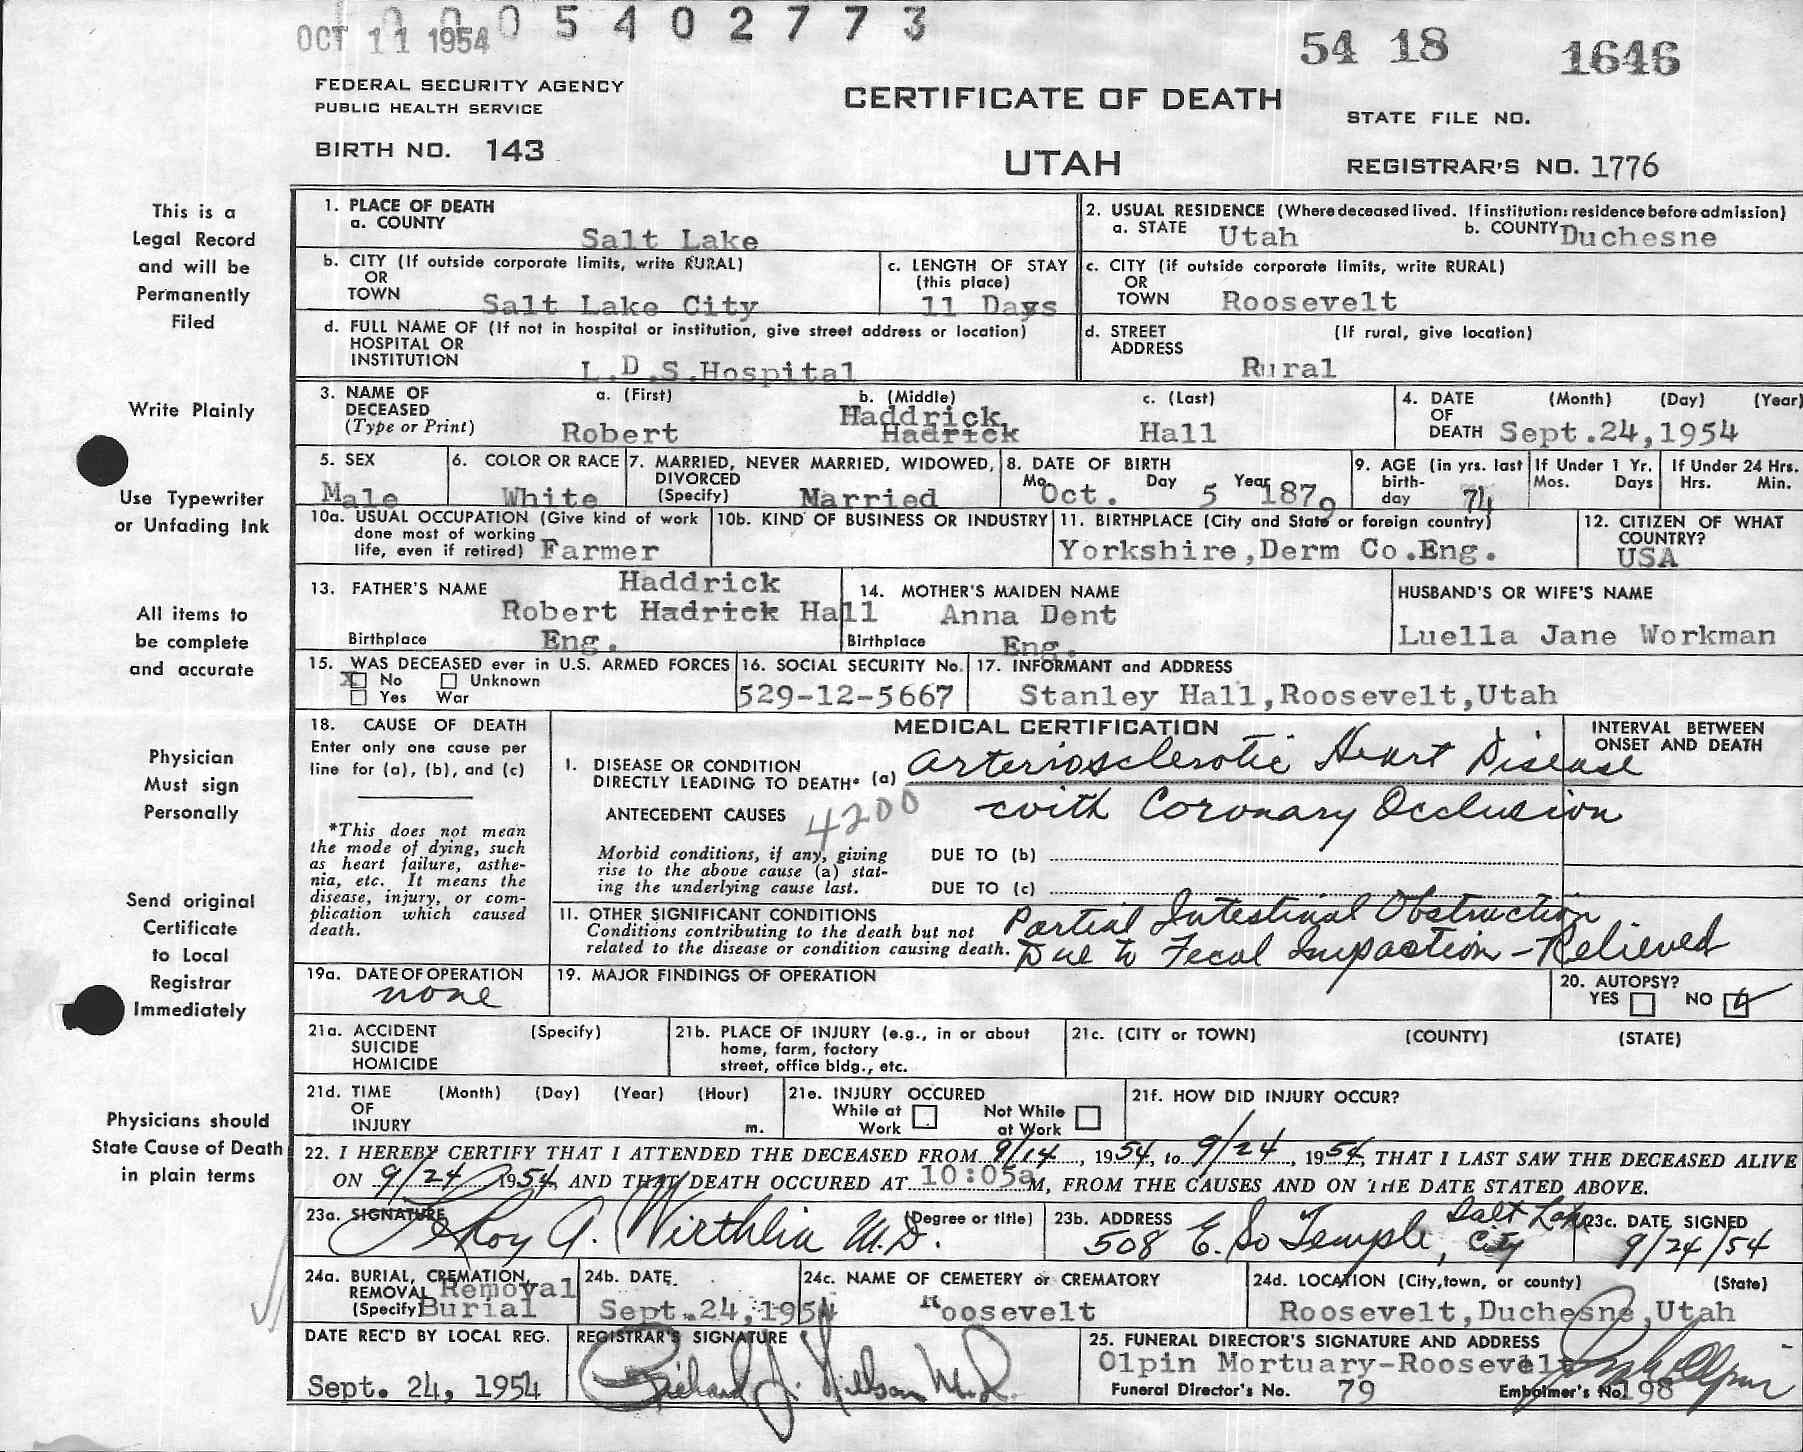 OCT 11 1954 0 0 0 5 4 0 2 7 7 3
54 18 1646
FEDERAL SECURITY AGENCY
PUBLIC HEALTH SERVICE
CERTIFICATE OF DEATH
STATE FILE NO.
BIRTH NO. 143
UTAH
REGISTRAR'S NO. 1776
This is a
Legal Record
and will be
Permanently
Filed
Write Plainly
Use Typewriter
or Unfading Ink
All items to
be complete
and accurate
Physician
Must sign
Personally
Send original
Certificate
to Local
Registrar
Immediately
Physicians should
State Cause of Death
in plain terms
1. PLACE OF DEATH
a. COUNTY
Salt Lake
2. USUAL RESIDENCE (Where deceased lived. If institution: residence before admission)
a. STATE Utah b. COUNTY Duchesne
b. CITY (If outside corporate limits, write RURAL)
OR
TOWN Salt Lake City
c. LENGTH OF STAY
(this place)
11 Days
c. CITY (if outside corporate limits, write RURAL)
OR
TOWN Roosevelt
d. FULL NAME OF (If not in hospital or institution, give street address or location)
HOSPITAL OR
INSTITUTION L.D.S.Hospital
d. STREET (If rural, give location)
ADDRESS
Rural
3. NAME OF DECEASED
(Type or Print)
a. (First) b. (Middle) c. (Last)
Haddrick
Robert Hadrick Hall
4. DATE (Month) (Day) (Year)
OF
DEATH Sept.24,1954
5. SEX
Male
6. COLOR OR RACE
White
7. MARRIED, NEVER MARRIED, WIDOWED,
DIVORCED
(Specify) Married
8. DATE OF BIRTH
Mo. Day Year
Oct. 5 1879
9. AGE (in yrs. last
birth-
day 74
If Under 1 Yr.
Mos. Days
If Under 24 Hrs.
Hrs. Min.
10a. USUAL OCCUPATION (Give kind of work
done most of working
life, even if retired) Farmer
10b. KIND OF BUSINESS OR INDUSTRY
11. BIRTHPLACE (City and State or foreign country)
Yorkshire,Derm Co.Eng.
12. CITIZEN OF WHAT
COUNTRY?
USA
13. FATHER'S NAME Haddrick
Robert Hadrick Hall
Birthplace Eng.
14. MOTHER'S MAIDEN NAME
Anna Dent
Birthplace Eng.
HUSBAND'S OR WIFE'S NAME
Luella Jane Workman
15. WAS DECEASED ever in U.S. ARMED FORCES
X No Unknown
Yes War
16. SOCIAL SECURITY No.
529-12-5667
17. INFORMANT and ADDRESS
Stanley Hall,Roosevelt,Utah
18. CAUSE OF DEATH
Enter only one cause per
line for (a), (b), and (c)
*This does not mean
the mode of dying, such
as heart failure, asthe-
nia, etc. It means the
disease, injury, or com-
plication which caused
death.
MEDICAL CERTIFICATION
INTERVAL BETWEEN
ONSET AND DEATH
I. DISEASE OR CONDITION
DIRECTLY LEADING TO DEATH* (a) Arteriosclerotic Heart Disease
ANTECEDENT CAUSES 4200 with Coronary Occlusion
Morbid conditions, if any, giving
rise to the above cause (a) stat-
ing the underlying cause last.
DUE TO (b)
DUE TO (c)
II. OTHER SIGNIFICANT CONDITIONS
Conditions contributing to the death but not
related to the disease or condition causing death.
Partial Intestinal Obstruction
Due to Fecal Impaction - Relieved
19a. DATE OF OPERATION
none
19. MAJOR FINDINGS OF OPERATION
20. AUTOPSY?
YES NO
21a. ACCIDENT (Specify)
SUICIDE
HOMICIDE
21b. PLACE OF INJURY (e.g., in or about
home, farm, factory
street, office bldg., etc.
21c. (CITY or TOWN) (COUNTY) (STATE)
21d. TIME (Month) (Day) (Year) (Hour)
OF
INJURY m.
21e. INJURY OCCURED
While at Work Not While at Work
21f. HOW DID INJURY OCCUR?
22. I HEREBY CERTIFY THAT I ATTENDED THE DECEASED FROM 9/14, 1954, to 9/24, 1954, THAT I LAST SAW THE DECEASED ALIVE
ON 9/24 1954, AND THAT DEATH OCCURED AT 10:05a M, FROM THE CAUSES AND ON THE DATE STATED ABOVE.
23a. SIGNATURE (Degree or title)
LeRoy A. Wirthlin M.D.
23b. ADDRESS
508 E. So Temple, Salt Lake City
23c. DATE SIGNED
9/24/54
24a. BURIAL, CREMATION,
REMOVAL Removal
(Specify) Burial
24b. DATE.
Sept.24,1954
24c. NAME OF CEMETERY or CREMATORY
Roosevelt
24d. LOCATION (City,town, or county) (State)
Roosevelt,Duchesne,Utah
DATE REC'D BY LOCAL REG.
Sept. 24, 1954
REGISTRAR'S SIGNATURE
Richard J. M.D.
25. FUNERAL DIRECTOR'S SIGNATURE AND ADDRESS
Olpin Mortuary-Roosevelt Olpin
Funeral Director's No. 79 Embalmer's No. 198